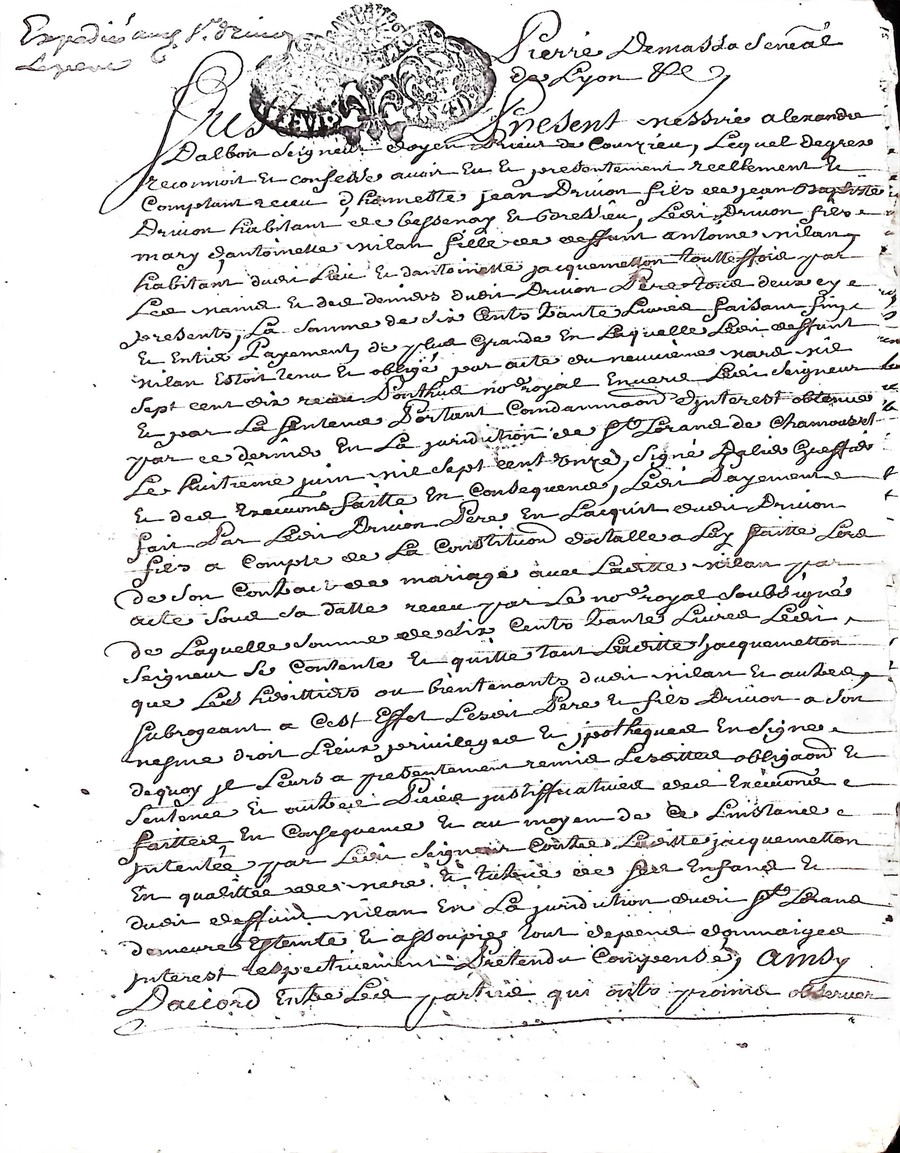 Expedié aux Sr. drivon
Pierre Demassa Seneal
de Lyon &c
Fus Present messire alexandre
Dalbon Seigneur doyen Prieur de Couzieu, Lequel degrex
reconnoit Et confesse avoir Eu Et presentement reellement Et
Comptant receu d'honneste jean Drivon fils de jean Baptiste
Drivon habitant de bessenay Et bressieu, Ledit Drivon fils
mary dantoinette nilan fille de deffunt antoine nilan
habitant dudit Lieu Et dantoinette jacquemetton touttefois par
Les mains Et des deniers dudit Drivon Pere tous deux cy
presents, La Somme de Six Cents trante Livres faisant fin
Et Entier Payement de plus Grande En Laquelle Ledit deffunt
nilan Estoit tenu Et obligé par acte du neuvième mars mil
Sept cent dix receu Ponthus nore royal Envers Ledit Seigneur
Et par La Sentence Portant Condamnaon dinterest obtenue
par ce dernier En La juridiction de St Lorand de Chamousset
Le huitième juin mil Sept cent onze, Signé Greffier
Et des Execuons faitte En Consequence, Ledit Payement
fait Par Ledit Drivon Pere En Lacquit dudit Drivon
fils a Compte de La Constitution dotalle a Luy faitte Lors
de Son Contract de mariage avec Laditte nilan par
acte Sous Sa datte receu par Le nore royal Soubsigné
de Laquelle Somme de Six Cents trante Livres Ledit
Seigneur Se Contente Et quitte tant Laditte jacquemetton
que Les heritiers ou bientenants dudit nilan Et autres,
Subrogeant a Cest Effet Lesdit Pere Et fils Drivon a Son
mesme droit Lieux privileges Et jpotheques En Signe
dequoy jl Leurs a presentement remis Lesdittes obligaon Et
Sentence Et autres Pieces justifficatives des Execuons
faittes En Consequence Et au moyen de Ce Linstance
jntentée par Ledit Seigneur Contre Laditte jacquemetton
En qualittée de mere Et tutrice de Ses Enfans Et
dudit deffunt nilan En La juridiction dudit St Lorand
demeure Esteinte Et assoupie tout depens dommages
jnterest respectivement Pretendu Compensé, ainsy
Daccord Entre Les parties qui ont promis observer